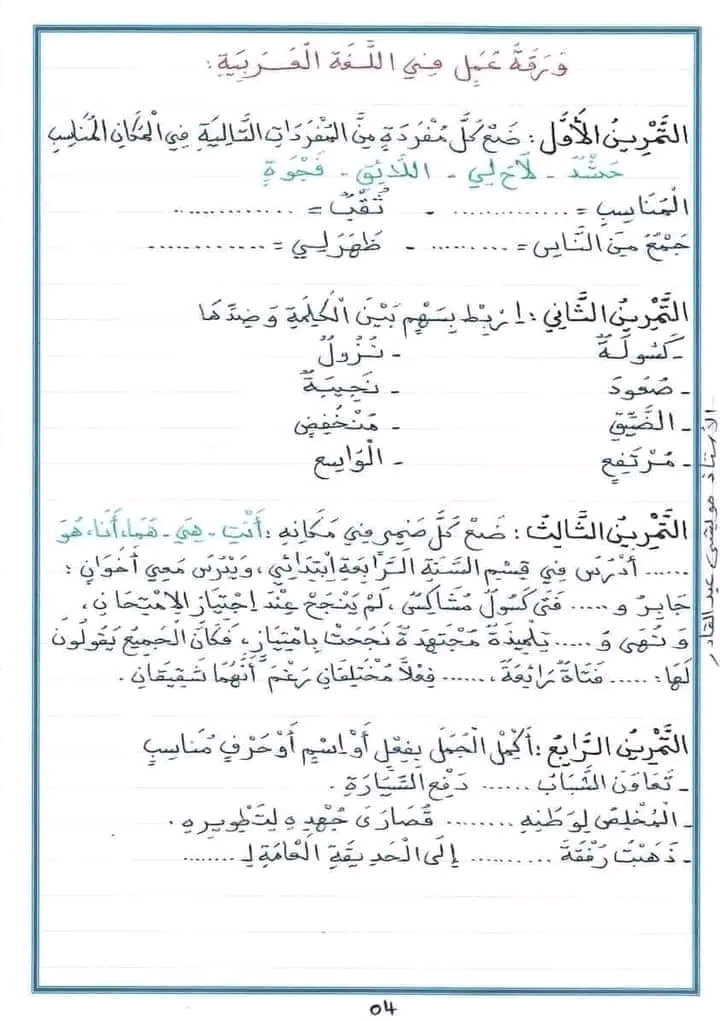 وَرَقَةُ عَمَلٍ فِي اللُّغَةِ الْعَرَبِيَّةِ :
التَّمْرِينُ الأَوَّلُ : ضَعْ كُلَّ مُفْرَدَةٍ مِنَ الْمُفْرَدَاتِ التَّالِيَةِ فِي الْمَكَانِ الْمُنَاسِبِ
حَشْدٌ - لَاحَ لِي - اللَّائِقِ - فَجْوَةٍ
الْمُنَاسِبِ = ............. - ثُقْبٌ = .............
جَمْعٌ مِنَ النَّاسِ = ......... - ظَهَرَ لِي = ............
التَّمْرِينُ الثَّانِي : اِرْبِطْ بِسَهْمٍ بَيْنَ الْكَلِمَةِ وَضِدِّهَا
- كَسُولَةٌ - نُزُولٌ
- صُعُودَ - نَجِيبَةٌ
- الضَّيِّقِ - مُنْخَفِضٍ
- مُرْتَفِعٍ - الْوَاسِعِ
التَّمْرِينُ الثَّالِثُ : ضَعْ كُلَّ ضَمِيرٍ فِي مَكَانِهِ : أَنْتِ - هِيَ - هُمَا، أَنَا، هُوَ
...... أَدْرُسُ فِي قِسْمِ السَّنَةِ الرَّابِعَةِ ابْتِدَائِي، وَيَدْرُسُ مَعِي أَخَوَانِ :
جَابِرُ وَ ..... فَتًى كَسُولٌ مُشَاكِسٌ، لَمْ يَنْجَحْ عِنْدَ اجْتِيَازِ الِامْتِحَانِ ،
وَنُهَى وَ ..... تِلْمِيذَةٌ مُجْتَهِدَةٌ نَجَحَتْ بِامْتِيَازٍ، فَكَانَ الْجَمِيعُ يَقُولُونَ
لَهَا : ..... فَتَاةٌ رَائِعَةٌ، ...... فِعْلاً مُخْتَلِفَانِ رَغْمَ أَنَّهُمَا شَقِيقَانِ .
التَّمْرِينُ الرَّابِعُ : أَكْمِلْ الْجُمَلَ بِفِعْلٍ أَوْ اِسْمٍ أَوْ حَرْفٍ مُنَاسِبٍ
- تَعَاوَنَ الشَّبَابُ ...... دَفْعِ السَّيَّارَةِ .
- الْمُخْلِصُ لِوَطَنِهِ ........ قُصَارَى جُهْدِهِ لِتَطْوِيرِهِ .
- ذَهَبْتُ رُفْقَةَ .......... إِلَى الْحَدِيقَةِ الْعَامَّةِ لِـ ........
الأستاذ عبد القادر
04